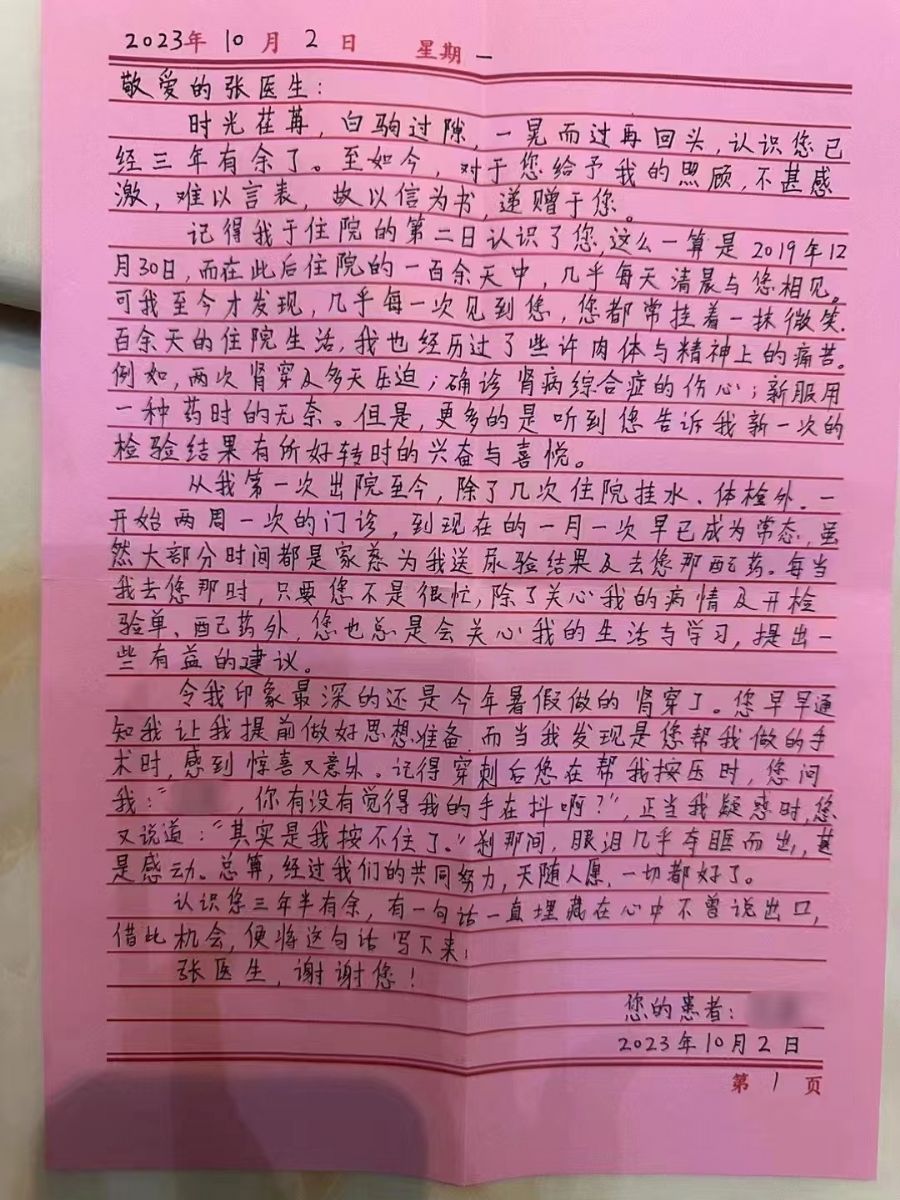 2023年 10 月 2 日 星期 一
敬爱的张医生：
时光荏苒，白驹过隙，一晃而过再回头，认识您已
经三年有余了。至如今，对于您给予我的照顾，不甚感
激，难以言表，故以信为书，递赠于您。
记得我于住院的第二日认识了您，这么一算是2019年12
月30日，而在此后住院的一百余天中，几乎每天清晨与您相见。
可我至今才发现，几乎每一次见到您，您都常挂着一抹微笑。
百余天的住院生活，我也经历过了些许肉体与精神上的痛苦。
例如，两次肾穿及多天压迫；确诊肾病综合症的伤心；新服用
一种药时的无奈。但是，更多的是听到您告诉我新一次的
检验结果有所好转时的兴奋与喜悦。
从我第一次出院至今，除了几次住院挂水、体检外，一
开始两周一次的门诊，到现在的一月一次早已成为常态，虽
然大部分时间都是家慈为我送尿验结果及去您那配药。每当
我去您那时，只要您不是很忙，除了关心我的病情及开检
验单、配药外，您也总是会关心我的生活与学习，提出一
些有益的建议。
令我印象最深的还是今年暑假做的肾穿了。您早早通
知我让我提前做好思想准备，而当我发现是您帮我做的手
术时，感到惊喜又意外。记得穿刺后您在帮我按压时，您问
我：“，你有没有觉得我的手在抖啊？”，正当我疑惑时，您
又说道：“其实是我按不住了。”刹那间，眼泪几乎夺眶而出，甚
是感动。总算，经过我们的共同努力，天随人愿，一切都好了。
认识您三年半有余，有一句话一直埋藏在心中不曾说出口，
借此机会，便将这句话写下来：
张医生，谢谢您！
您的患者：
2023年10月2日
第 1 页